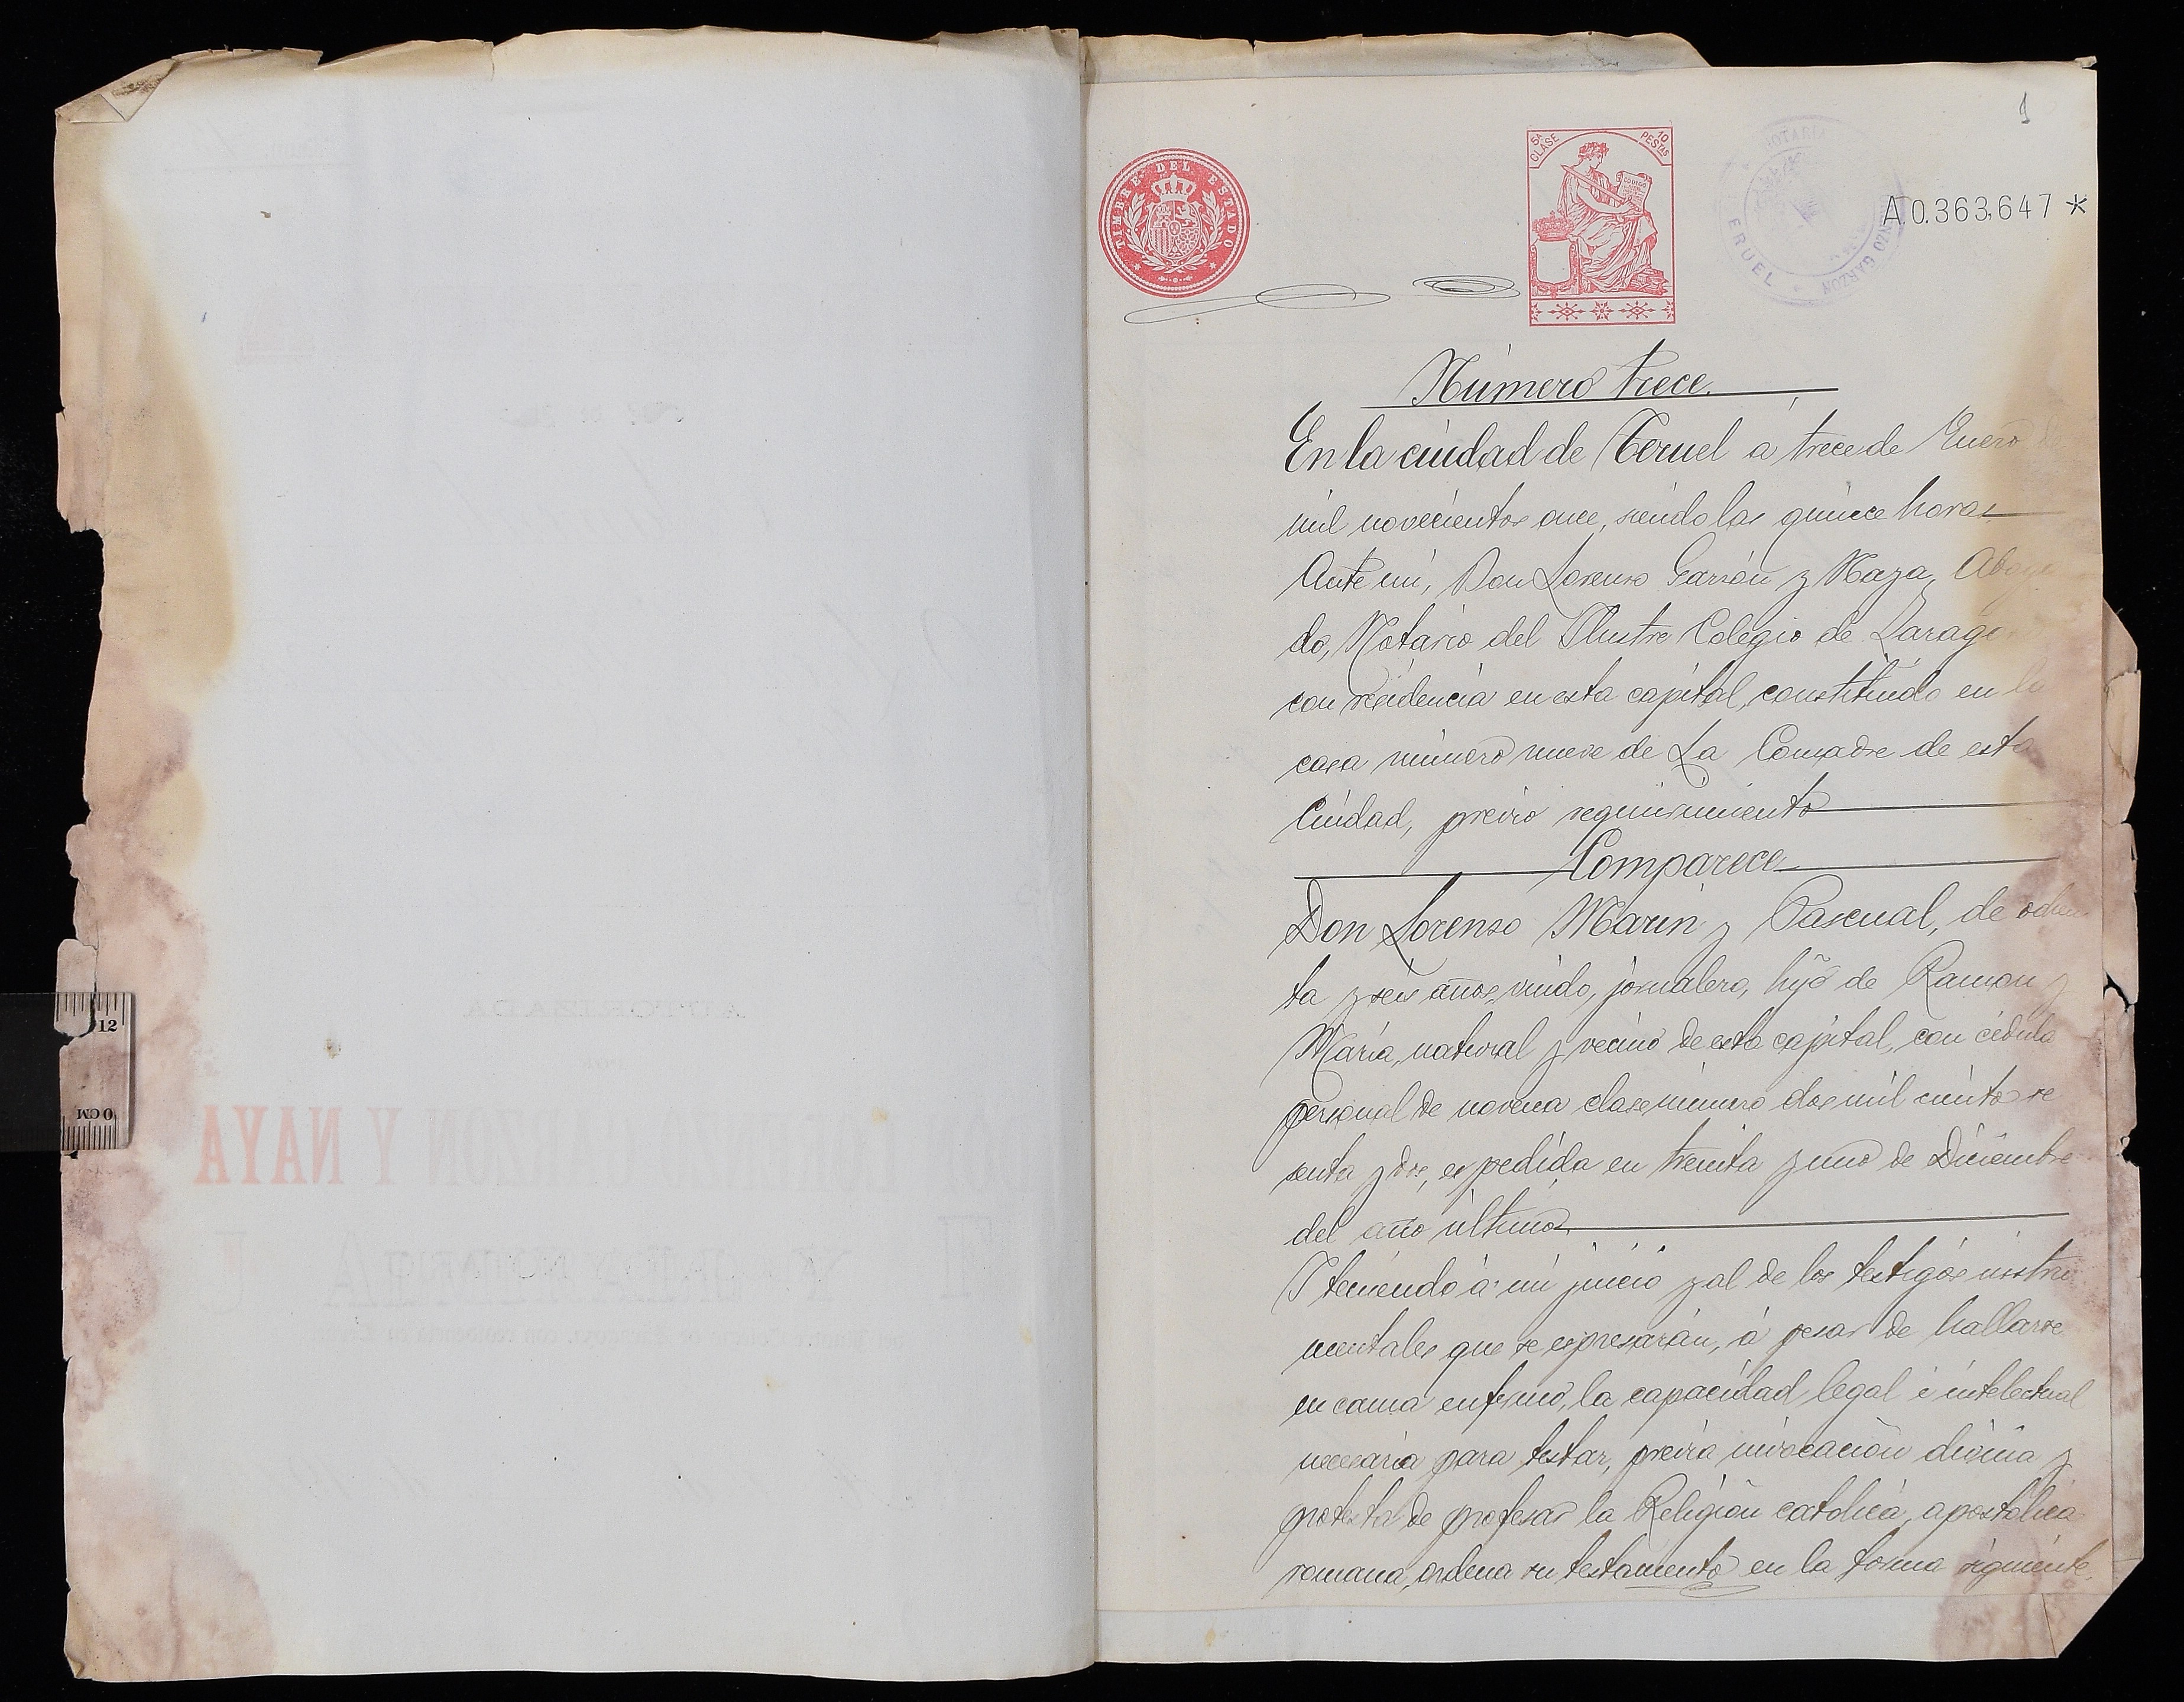 1
TIMBRE DEL ESTADO
5ª CLASE
10 PESTAS
NOTARIA
LORENZO GARZON
TERUEL
A.0.363,647 *
Número trece.
En la ciudad de Teruel á trece de Enero de
mil novecientos once, siendo las quince horas
Ante mi, Don Lorenzo Garzón y Naya, Aboga
do, Notario del Ilustre Colegio de Zarago
con residencia en esta capital, constituido en la
casa número nueve de La Comadre de esta
Ciudad, previo requirimiento
Comparece
Don Lorenzo Marin y Pascual, de ochen
ta y seis años, viudo, jornalero, hijo de Ramon y
María, natural y vecino de esta capital, con cédula
personal de novena clase número dos mil ciento se
senta y dos, expedida en treinta y uno de Diciembre
del año último.
Y teniendo á mi juicio y al de los testigos instru
mentales que se expresarán, á pesar de hallarse
en cama enfermo, la capacidad legal é intelectual
necesaria para testar, previa invocación divina y
protesta de profesar la Religión católica, apostólica
romana, ordena su testamento en la forma siguiente.
AUTORIZADA
DON LORENZO GARZON Y NAYA
12
0 CM